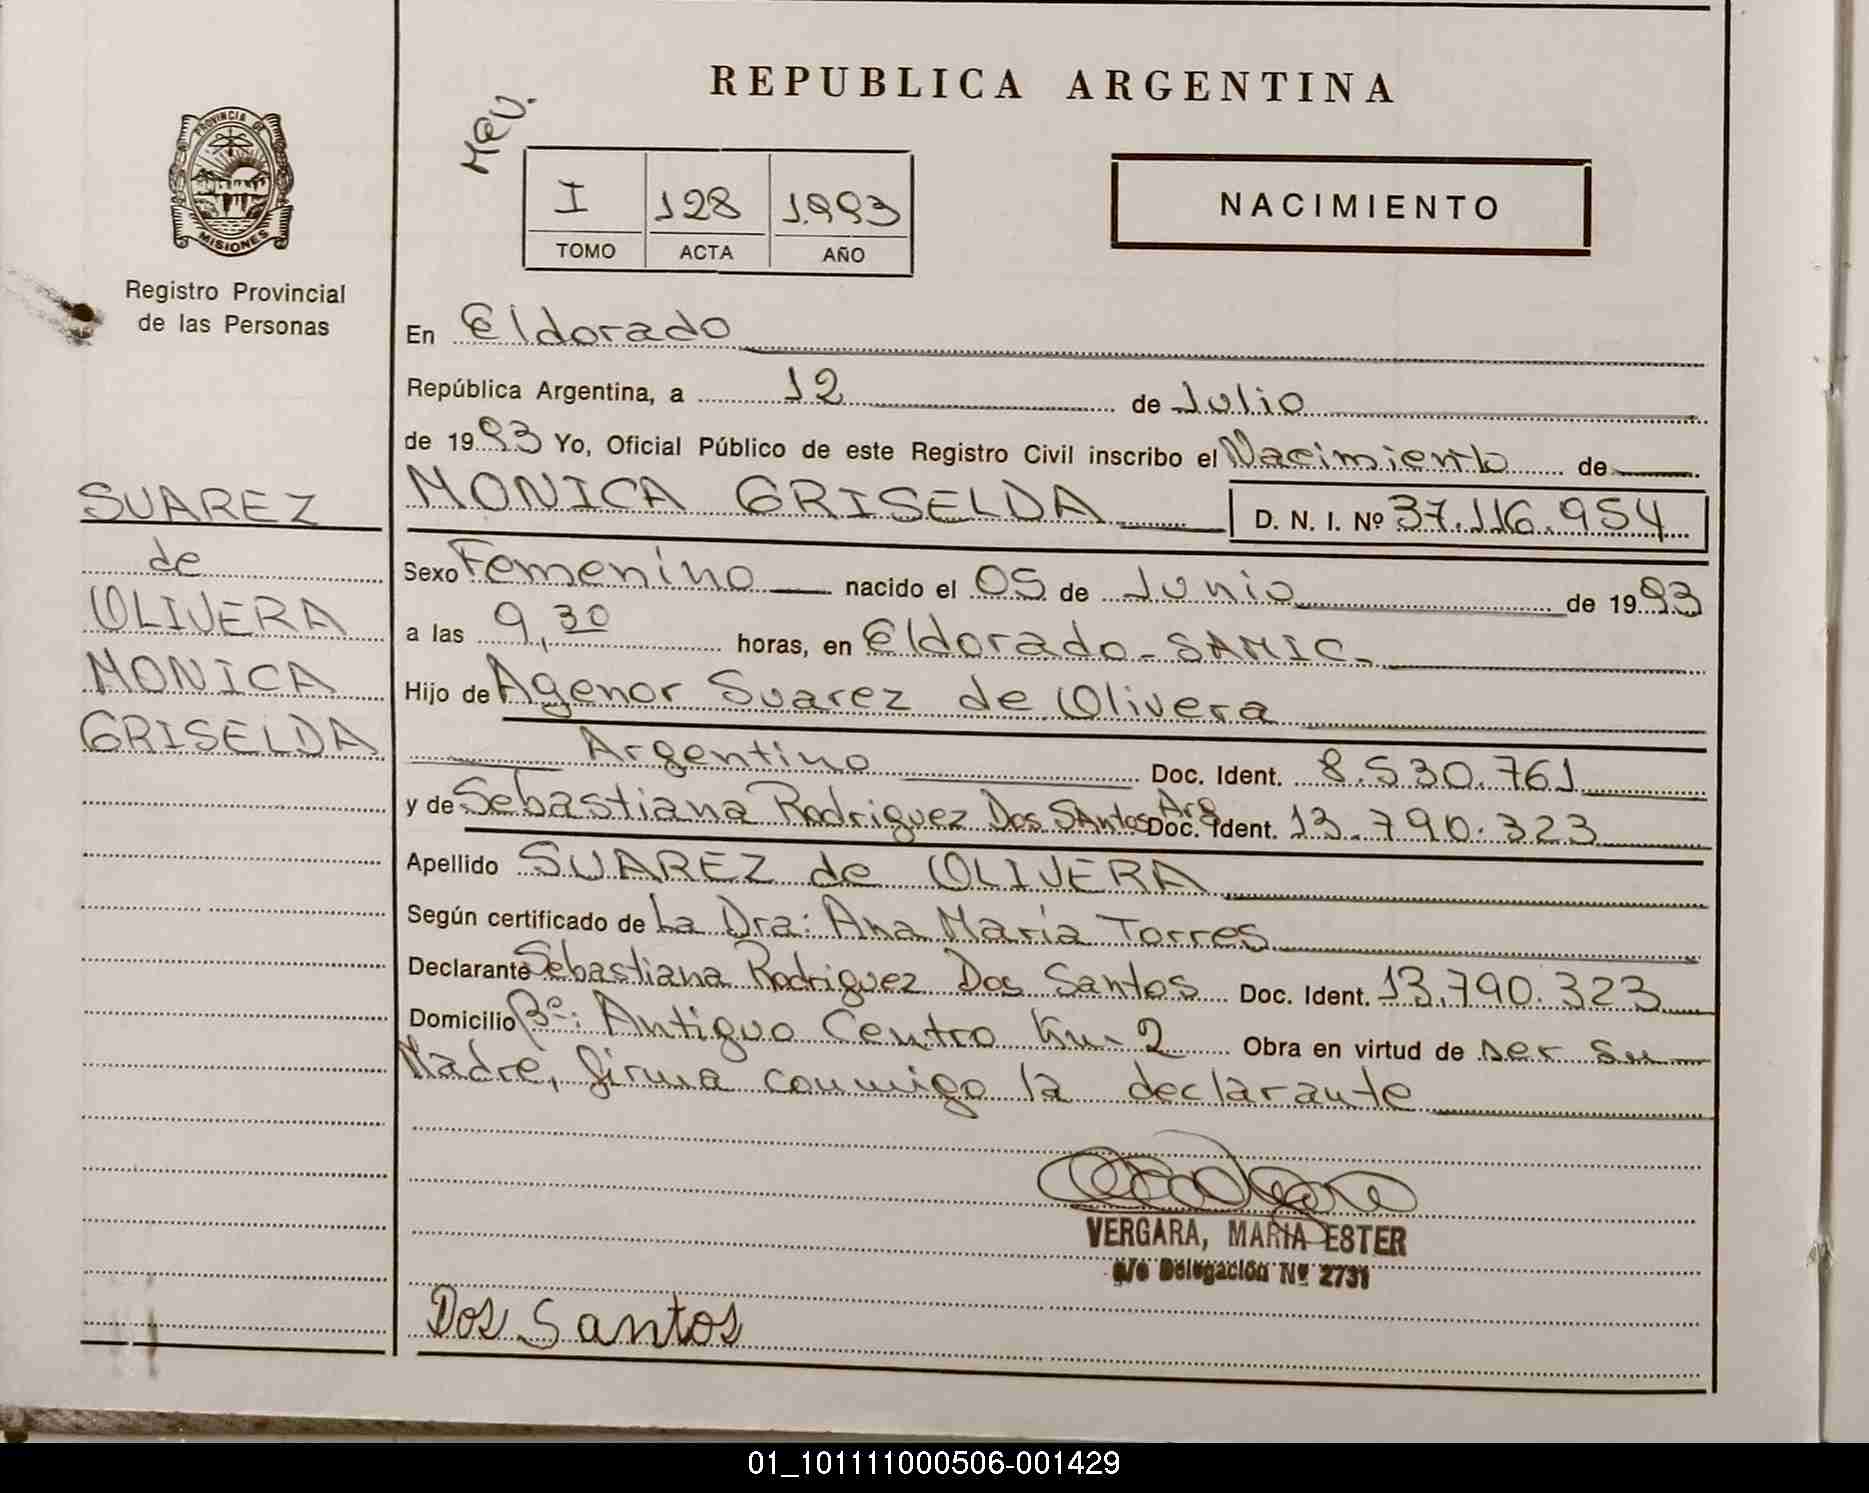 REPUBLICA ARGENTINA
PROVINCIA DE
MISIONES
Registro Provincial
de las Personas
I 128 1993
TOMO ACTA AÑO
NACIMIENTO
En Eldorado
República Argentina, a 12 de Julio
de 1993 Yo, Oficial Público de este Registro Civil inscribo el Nacimiento de
MONICA GRISELDA D. N. I. Nº 37.116.954
SUAREZ
de
OLIVERA
MONICA
GRISELDA
Sexo Femenino nacido el 05 de Junio de 1993
a las 9,30 horas, en Eldorado - SAMIC -
Hijo de Agenor Suarez de Olivera
Argentino Doc. Ident. 8.530.761
y de Sebastiana Rodriguez Dos Santos Arg Doc. Ident. 13.790.323
Apellido SUAREZ de OLIVERA
Según certificado de La Dra: Ana María Torres
Declarante Sebastiana Rodriguez Dos Santos Doc. Ident. 13.790.323
Domicilio Bº: Antiguo Centro Km 2 Obra en virtud de ser su
Madre, firma conmigo la declarante
VERGARA, MARIA ESTER
Delegación Nº 2731
Dos Santos
01_101111000506-001429